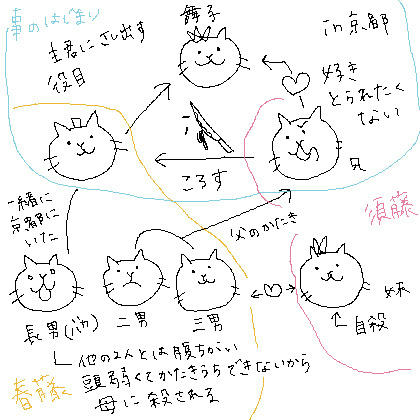 事のはじまり
舞子
in京都
主君にさし出す
役目
好き
とられたく
ない
ころす
兄
一緒に
京都に
いた
父のかたき
須藤
長男(バカ)
二男
三男
妹
自殺
他の2人とは腹ちがい
頭弱くてかたきうちできないから
母に殺される
春藤